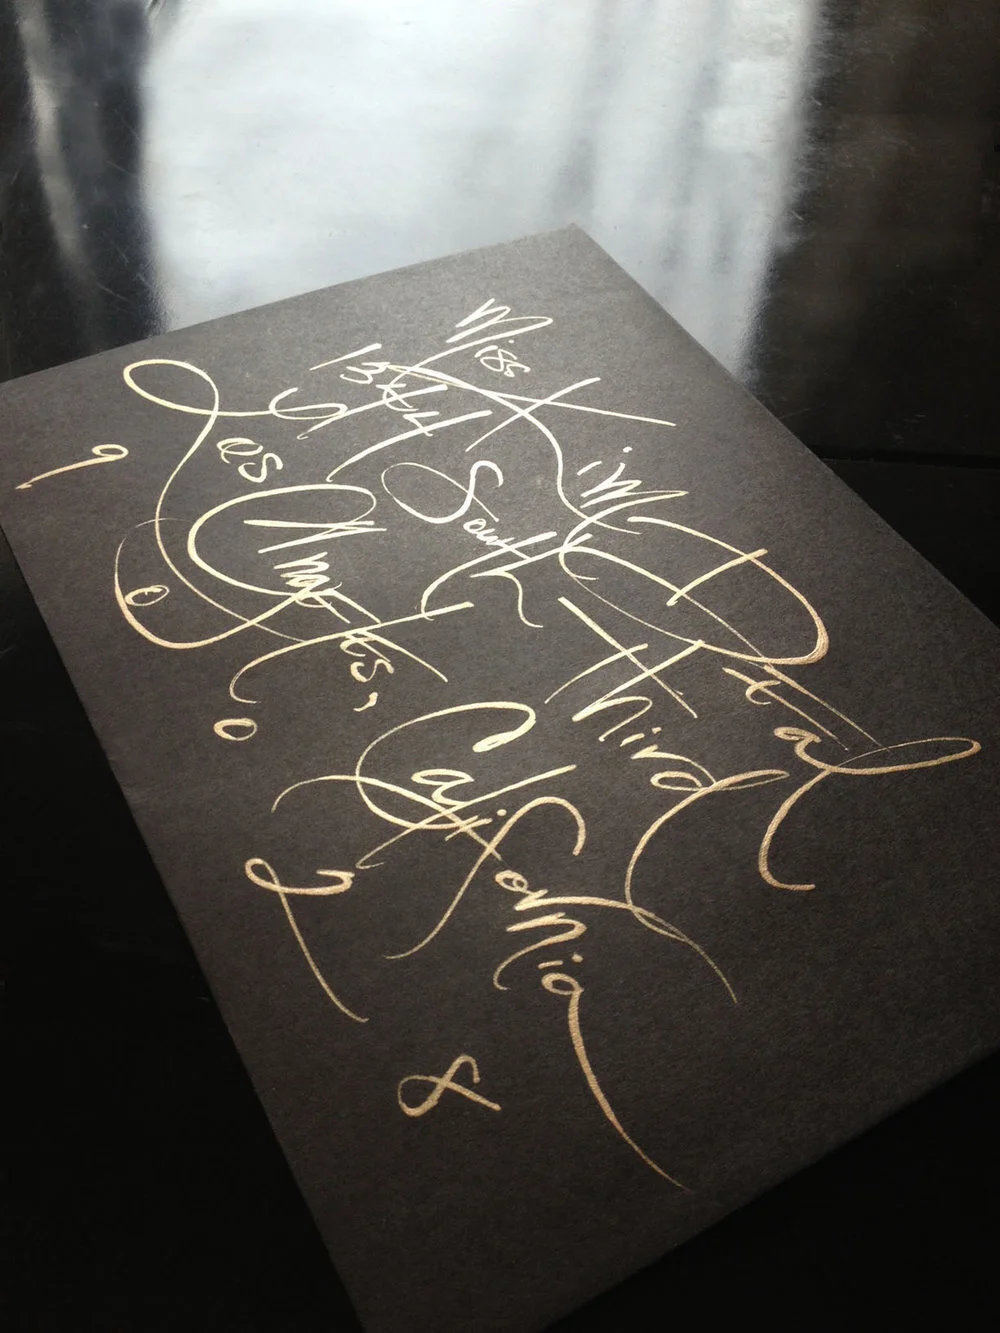 Miss Kim
South Third
Los Angeles, California
90028